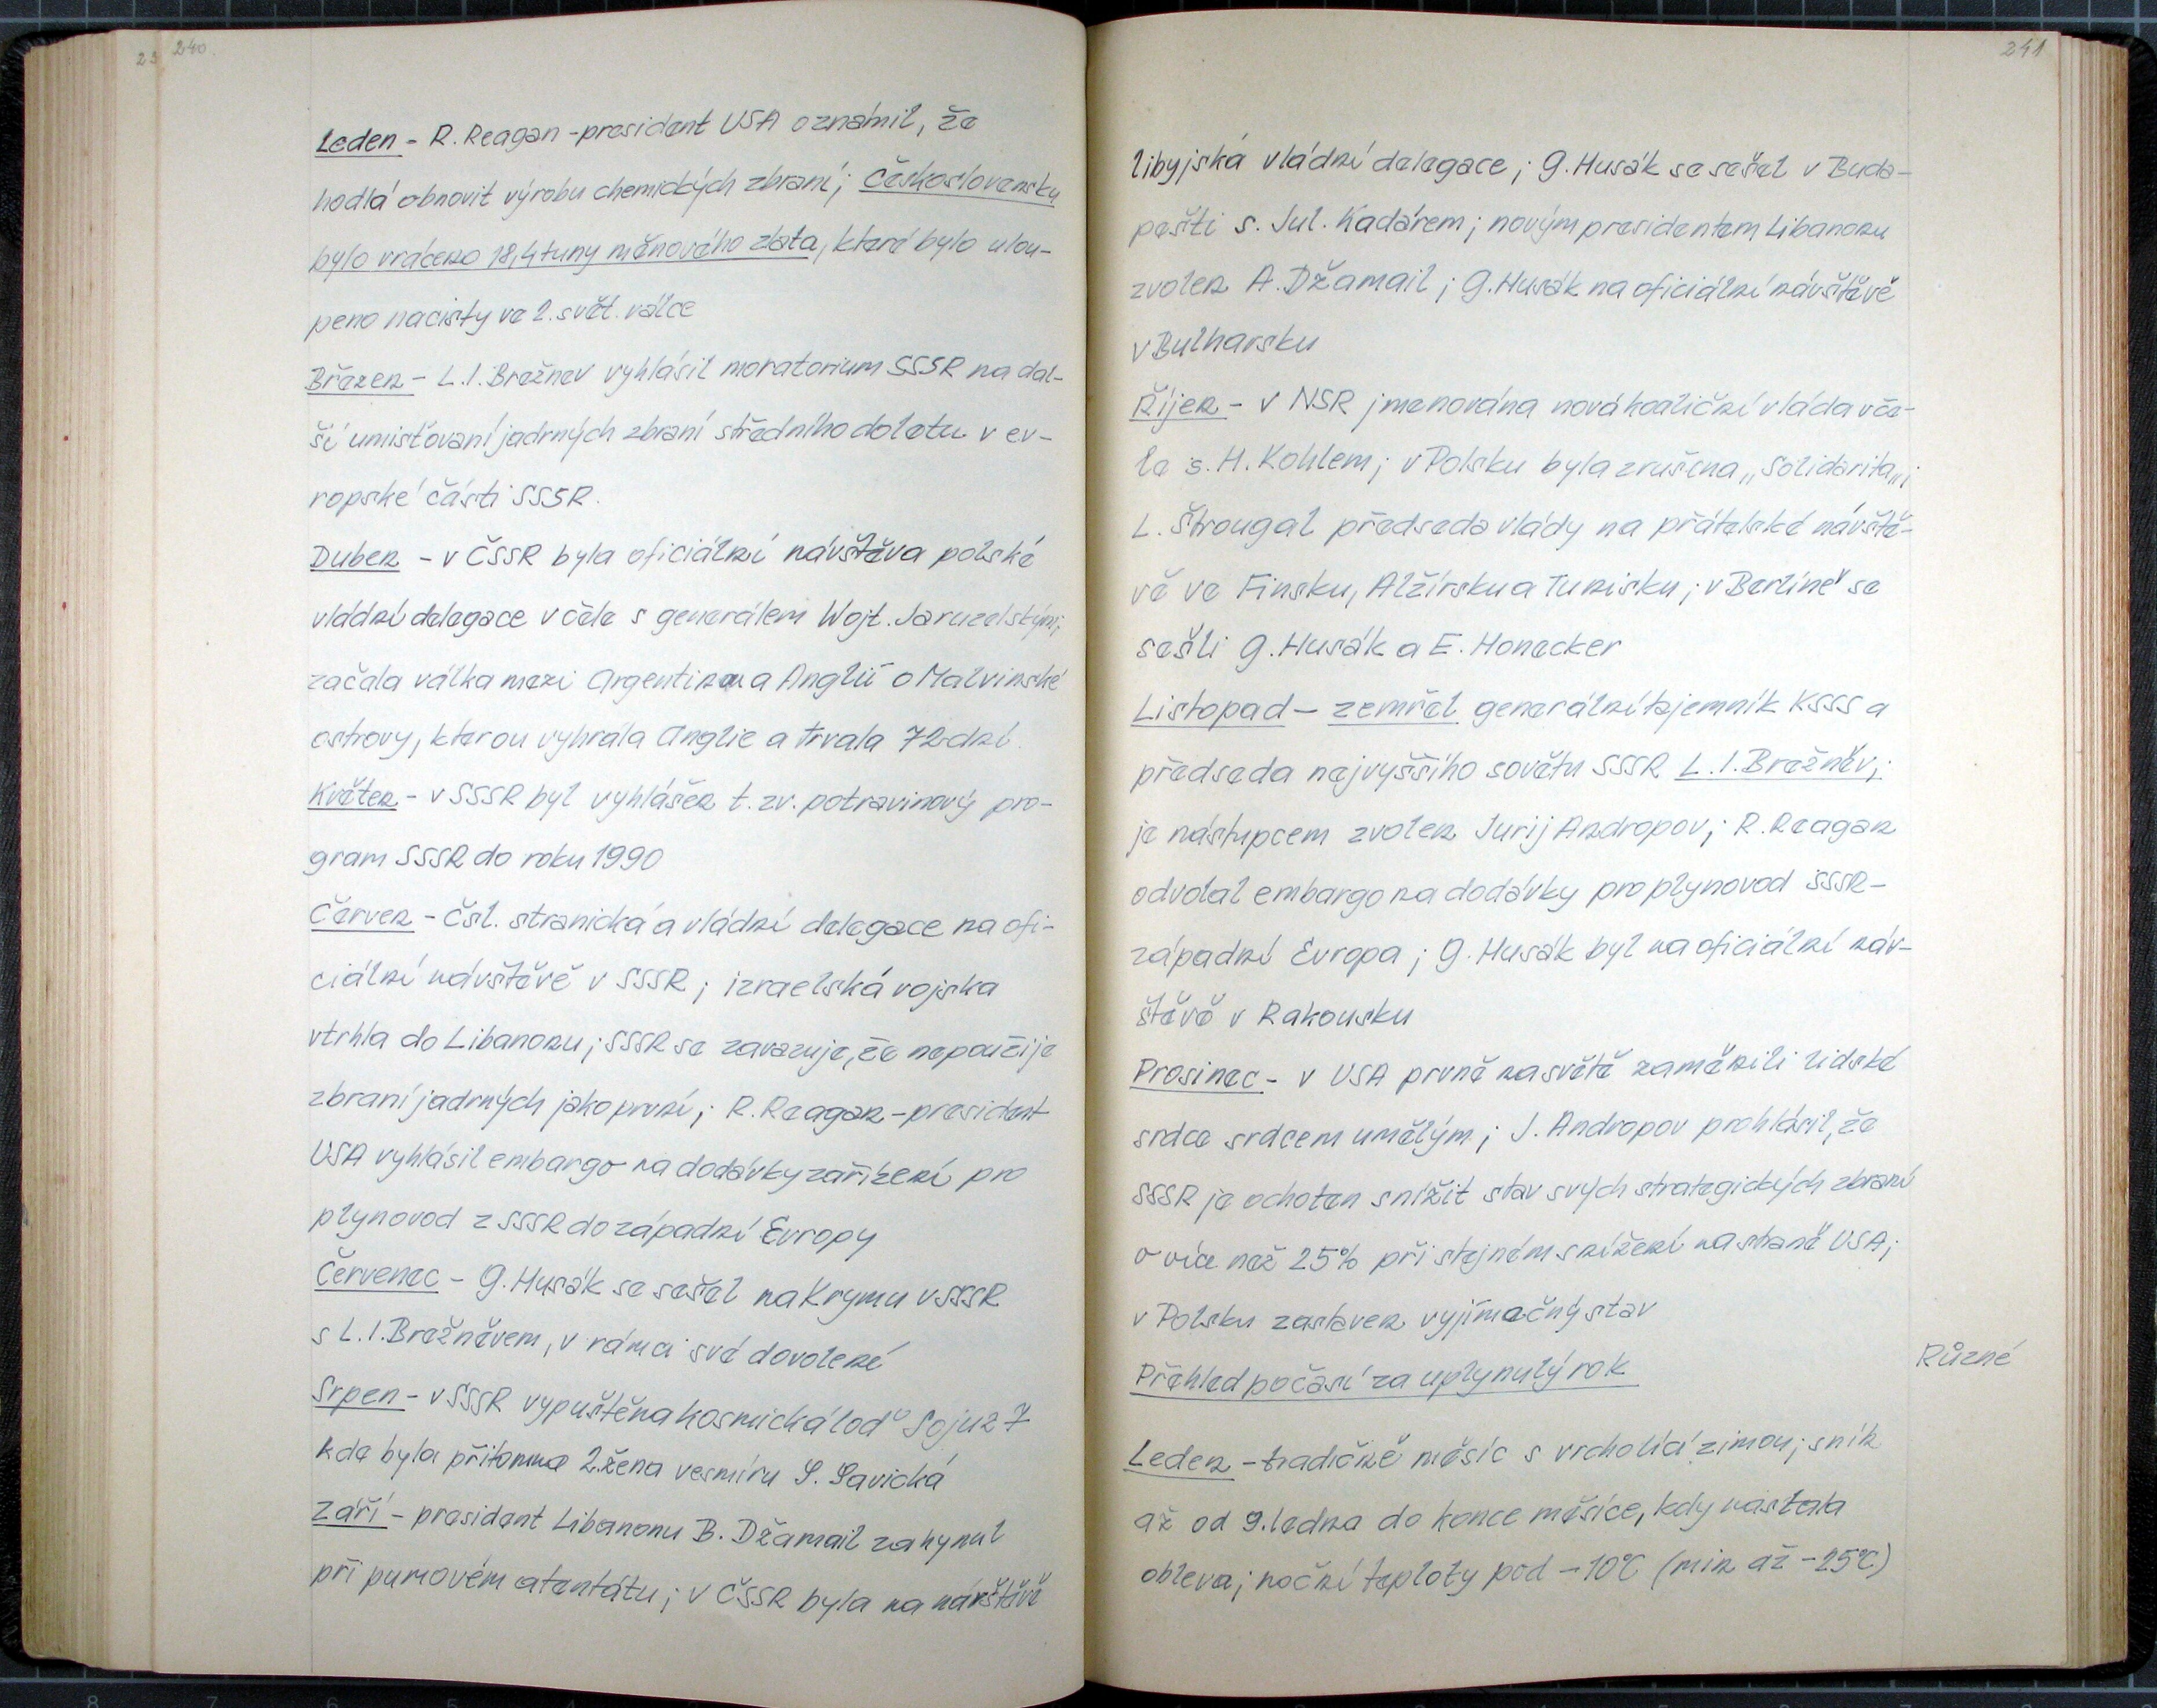 23 240.
Leden - R. Reagan - president USA oznámil, že
hodlá obnovit výrobu chemických zbraní; Československu
bylo vráceno 18,4 tuny měnového zlata, které bylo ulou-
peno nacisty ve 2. svět. válce
Březen - L.I. Brežnev vyhlásil moratorium SSSR na dal-
ší umisťovaní jadrných zbraní středního doletu v ev-
ropské části SSSR.
Duben - v ČSSR byla oficiální návštěva polské
vládní delegace v čele s generálem Wojt. Jaruzelským;
začala válka mezi Argentinou a Anglií o Malvinské
ostrovy, kterou vyhrála Anglie a trvala 72 dní.
Květen - v SSSR byl vyhlášen t. zv. potravinový pro-
gram SSSR do roku 1990
Červen - čsl. stranická a vládní delegace na ofi-
ciální návštěvě v SSSR; izraelská vojska
vtrhla do Libanonu; SSSR se zavazuje, že nepoužije
zbraní jadrných jako první; R. Reagan - president
USA vyhlásil embargo na dodávky zařízení pro
plynovod z SSSR do západní Evropy
Červenec - G. Husák se sešel na Krymu v SSSR
s L.I. Brežněvem, v rámci své dovolené
Srpen - v SSSR vypuštěna kosmická loď Sojuz 7
kde byla přítomna 2. žena vesmíru S. Savická
Září - president Libanonu B. Džamail zahynul
při pumovém atentátu; v ČSSR byla na návštěvě
241
libyjská vládní delegace; G. Husák se sešel v Buda-
pešti s. Jul. Kadárem; novým presidentem Libanonu
zvolen A. Džamail; G. Husák na oficiální návštěvě
v Bulharsku
Říjen - v NSR jmenována nová koaliční vláda v če-
le s. H. Kohlem; v Polsku byla zrušena „Solidarita„;
L. Štrougal předseda vlády na přátelské návště-
vě ve Finsku, Alžírsku a Tunisku; v Berlíně se
sešli G. Husák a E. Honecker
Listopad - zemřel generální tajemník KSSS a
předseda nejvyššího sovětu SSSR L.I. Brežněv;
je nástupcem zvolen Jurij Andropov; R. Reagan
odvolal embargo na dodávky pro plynovod SSSR -
západní Evropa; G. Husák byl na oficiální náv-
štěvě v Rakousku
Prosinec - v USA prvně na světě zaměnili lidské
srdce srdcem umělým; J. Andropov prohlásil, že
SSSR je ochoten snížit stav svých strategických zbraní
o více než 25% při stejném snížení na straně USA;
v Polsku zastaven vyjímečný stav
Různé
Přehled počasí za uplynulý rok
Leden - tradičně měsíc s vrcholící zimou; sníh
až od 9. ledna do konce měsíce, kdy nastala
obleva; noční teploty pod -10°C (min až -25°C)